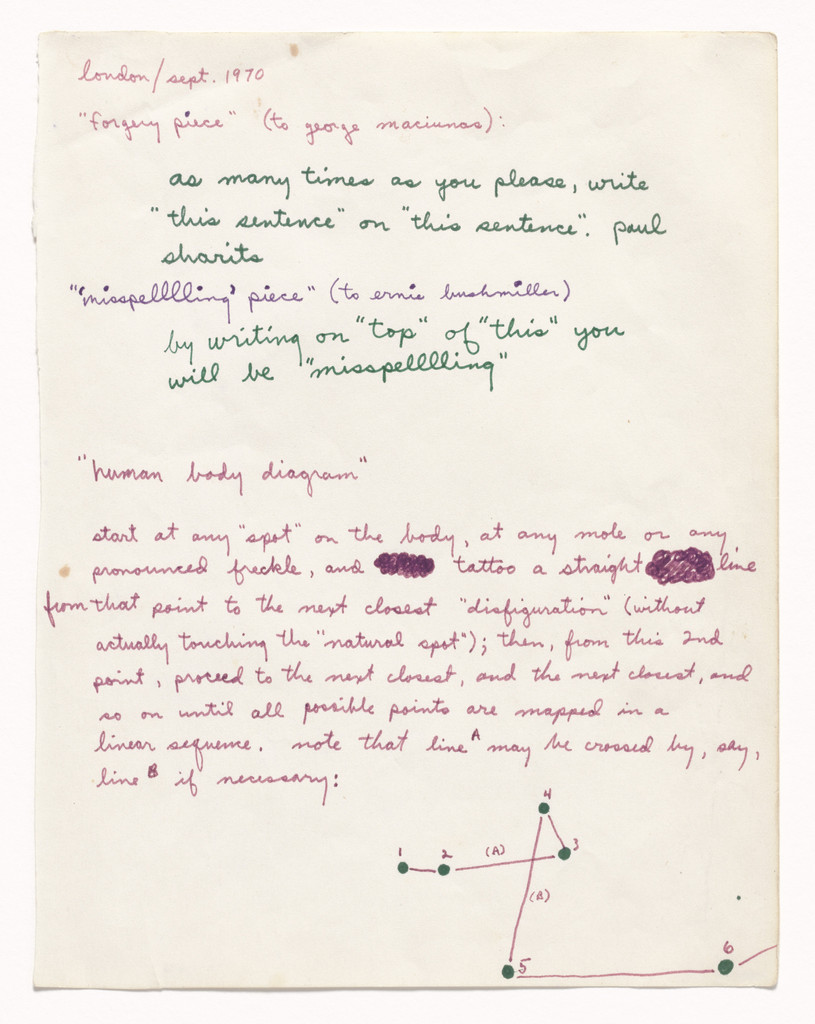 london/sept. 1970
"forgery piece" (to george maciunas):
as many times as you please, write
"this sentence" on "this sentence". paul
sharits
"'misspelllling' piece" (to ernie bushmiller)
by writing on "top" of "this" you
will be "misspelllling"
"human body diagram"
start at any "spot" on the body, at any mole or any
pronounced freckle, and tattoo a straight line
from that point to the next closest "disfiguration" (without
actually touching the "natural spot"); then, from this 2nd
point, proceed to the next closest, and the next closest, and
so on until all possible points are mapped in a
linear sequence. note that line A may be crossed by, say,
line B if necessary:
4
1 2 (A) 3
(B)
5 6